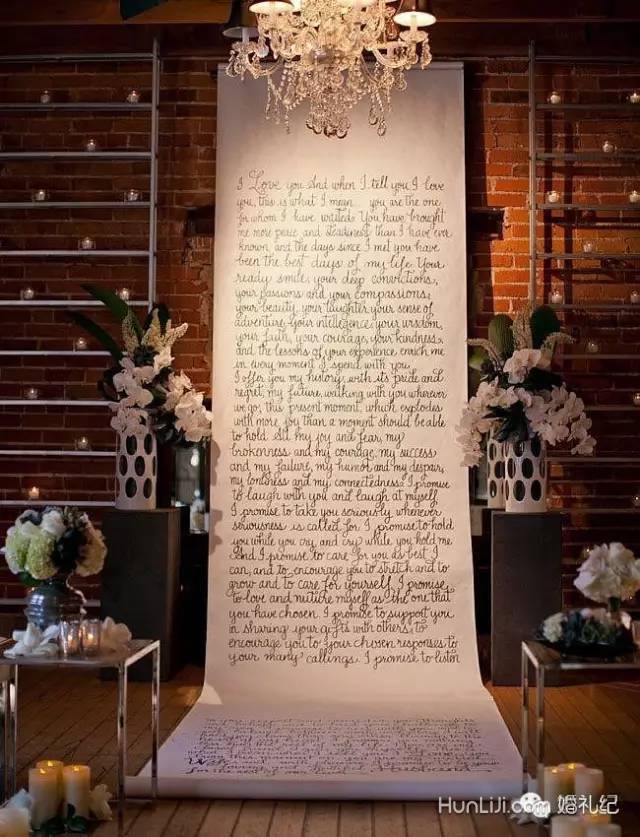 I Love you And when I tell you I love
you, this is what I mean. you are the one
for whom I have waited. You have brought
me more peace and steadiness than I have ever
known, and the days since I met you have
been the best days of my life. Your
ready smile, your deep convictions,
your passions and your compassions,
your beauty, your laughter, your sense of
adventure, your intelligence, your wisdom,
your faith, your courage, your kindness,
and the lessons of your experience, enrich me
in every moment I spend with you.
I offer you my history, with its pride and
regret, my future, walking with you wherever
we go, this present moment, which explodes
with more you than a moment should be able
to hold. All my joy and fear, my
brokenness and my courage, my success
and my failure, my humor and my despair,
my loneliness and my connectedness. I promise
to laugh with you and laugh at myself
I promise to take you seriously whenever
seriousness is called for. I promise to hold
you while you cry, and cry while you hold me
And I promise to care for you as best I
can, and to encourage you to stretch and to
grow and to care for yourself. I promise
to love and nurture myself as the one that
you have chosen. I promise to support you
in sharing your gifts with others, to
encourage you to your chosen responses to
your many callings. I promise to listen
HunLiJi.com
婚礼纪